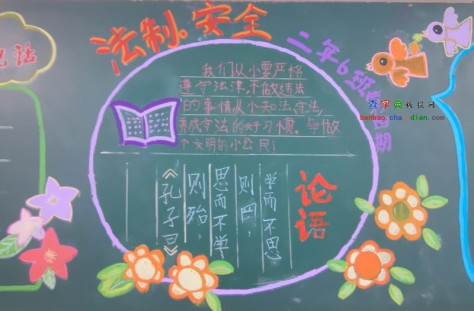 法制。安全
二年6班
查字典板报网
banbao.chazidian.com
我们从小要严格
遵守法津,不做违法
的事情从小知法、守法,
养成守法的好习惯。争做
个文明的小公民!
论语
学而不思
则罔,
思而不学
则殆,
《孔子曰》